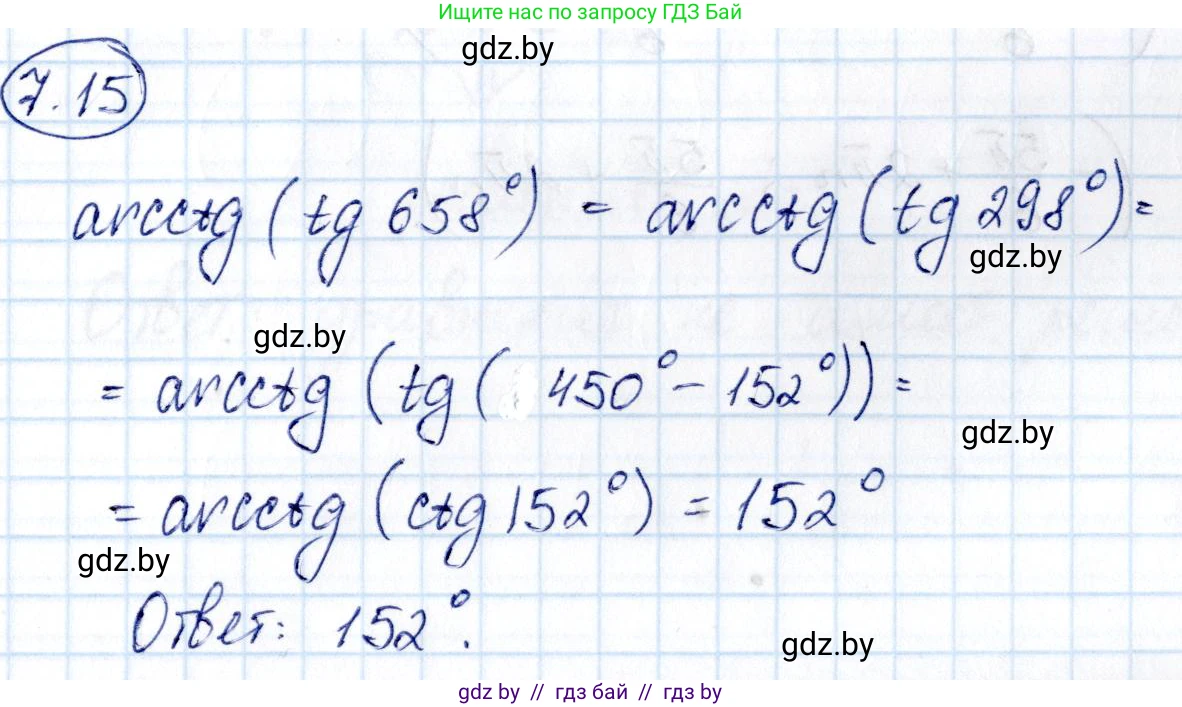 Ищите нас по запросу ГДЗ Бай
gdz.by
7.15
arcctg (tg 658°) = arcctg (tg 298°) =
gdz.by
gdz.by
= arcctg (tg ( 450° - 152°)) =
gdz.by
= arcctg (ctg 152°) = 152°
gdz.by
Ответ: 152°.
gdz.by
gdz by // гдз бай // гдз by